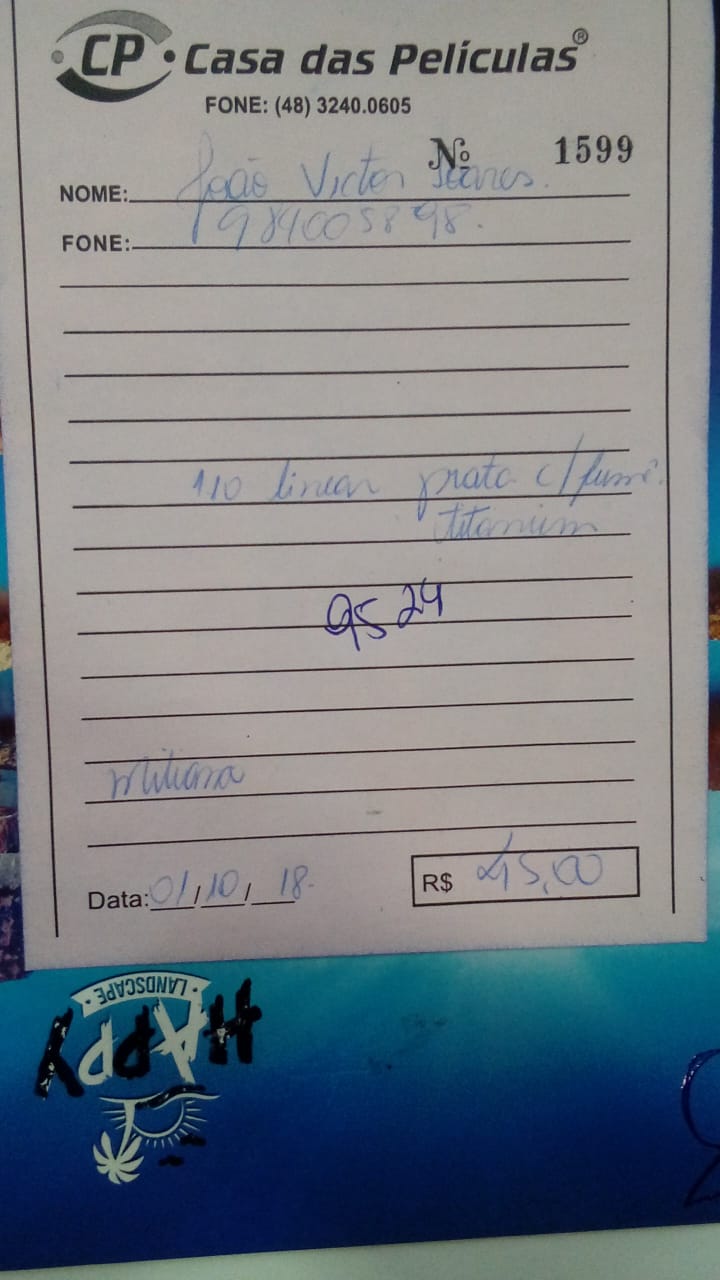 CP • Casa das Películas®
FONE: (48) 3240.0605
Nº 1599
NOME: João Victor Soares.
FONE: 984005898.
1,10 linear prata c/ fumê.
titanium
9524
Data: 01/10/18.
R$ 45,00
HAPPY
• LANDSCAPE •